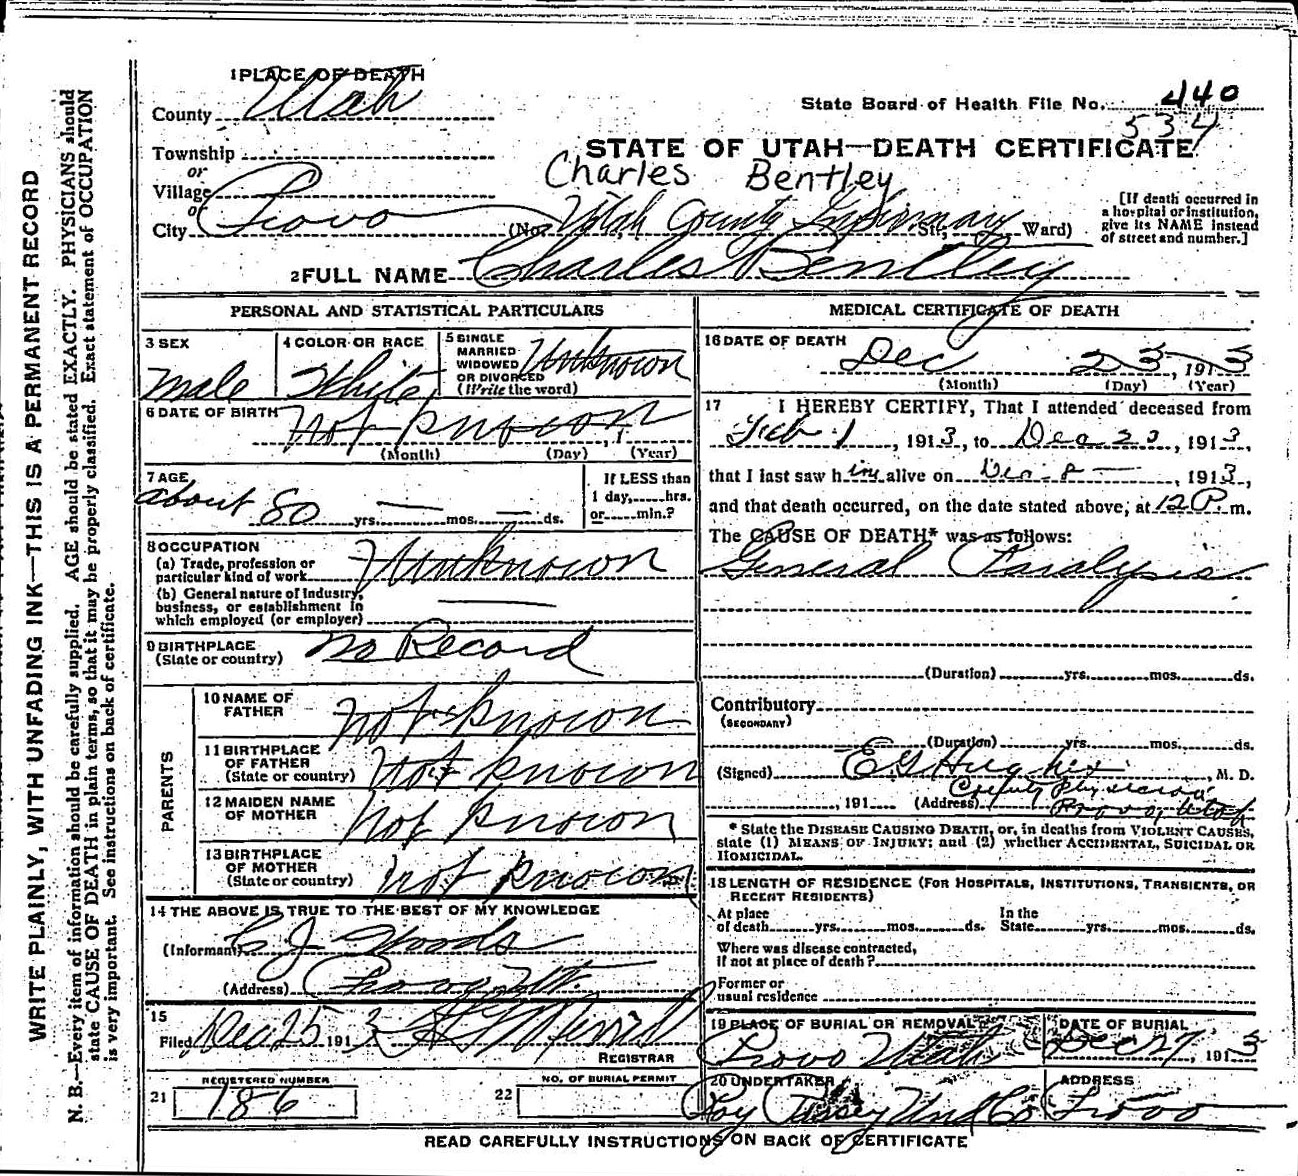 1 PLACE OF DEATH
County Utah
State Board of Health File No. 440
534
Township
or
Village
or
City Provo
STATE OF UTAH—DEATH CERTIFICATE
Charles Bentley
(No. Utah County Infirmary St., Ward)
[If death occurred in
a hospital or institution,
give its NAME instead
of street and number.]
2 FULL NAME Charles Bentley
PERSONAL AND STATISTICAL PARTICULARS
3 SEX
Male
4 COLOR OR RACE
White
5 SINGLE
MARRIED
WIDOWED
OR DIVORCED
(Write the word)
Unknown
6 DATE OF BIRTH
Not Known , 1
(Month) (Day) (Year)
7 AGE
about 80 yrs. — mos. — ds.
If LESS than
1 day, hrs.
or min.?
8 OCCUPATION
(a) Trade, profession or
particular kind of work Unknown
(b) General nature of Industry,
business, or establishment in
which employed (or employer)
9 BIRTHPLACE
(State or country) No Record
PARENTS
10 NAME OF
FATHER Not Known
11 BIRTHPLACE
OF FATHER
(State or country) Not Known
12 MAIDEN NAME
OF MOTHER Not Known
13 BIRTHPLACE
OF MOTHER
(State or country) Not Known
14 THE ABOVE IS TRUE TO THE BEST OF MY KNOWLEDGE
(Informant) J Woods
(Address) Provo, Ut.
15
Filed Dec 25 191 3
REGISTRAR
21 REGISTERED NUMBER
186
22 NO. OF BURIAL PERMIT
MEDICAL CERTIFICATE OF DEATH
16 DATE OF DEATH
Dec 23, 1913
(Month) (Day) (Year)
17 I HEREBY CERTIFY, That I attended deceased from
Feb. 1, 1913, to Dec 23, 1913,
that I last saw him alive on Dec. 8 —, 1913,
and that death occurred, on the date stated above, at 12 P. m.
The CAUSE OF DEATH* was as follows:
General Paralysis
(Duration) yrs. mos. ds.
Contributory
(SECONDARY)
(Duration) yrs. mos. ds.
(Signed) E G Hughes, M. D.
, 191 (Address) County Physician
Provo, Utah
* State the DISEASE CAUSING DEATH, or, in deaths from VIOLENT CAUSES,
state (1) MEANS OF INJURY; and (2) whether ACCIDENTAL, SUICIDAL OR
HOMICIDAL.
18 LENGTH OF RESIDENCE (FOR HOSPITALS, INSTITUTIONS, TRANSIENTS, OR
RECENT RESIDENTS)
At place
of death yrs. mos. ds.
In the
State yrs. mos. ds.
Where was disease contracted,
if not at place of death?
Former or
usual residence
19 PLACE OF BURIAL OR REMOVAL
Provo Utah
DATE OF BURIAL
Dec 27, 1913
20 UNDERTAKER
Und Co
ADDRESS
Provo
READ CAREFULLY INSTRUCTIONS ON BACK OF CERTIFICATE
WRITE PLAINLY, WITH UNFADING INK—THIS IS A PERMANENT RECORD
N. B.—Every item of information should be carefully supplied. AGE should be stated EXACTLY. PHYSICIANS should
state CAUSE OF DEATH in plain terms, so that it may be properly classified. Exact statement of OCCUPATION
is very important. See instructions on back of certificate.